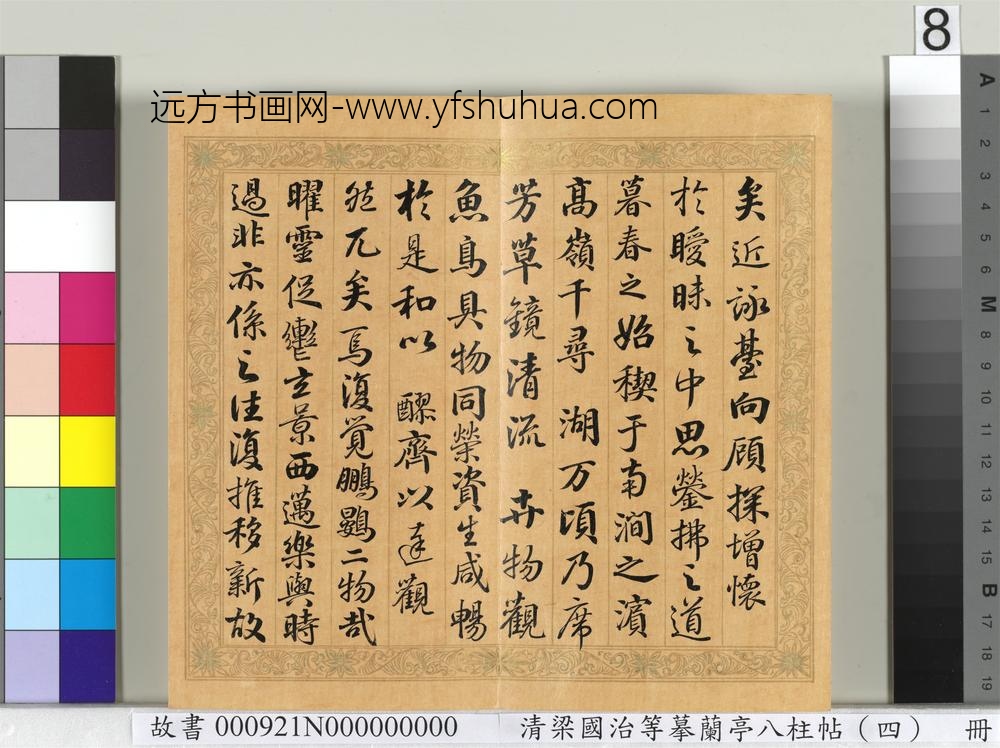 8
远方书画网-www.yfshuhua.com
矣近詠臺向顧探增懷
於曖昧之中思鎣拂之道
暮春之始稧于南澗之濱
高嶺千尋 湖万頃乃席
芳草鏡清流 卉物觀
魚鳥具物同榮資生咸暢
於是和以 醪齊以達觀
然兀矣焉復覺鵬鷃二物哉
曜靈促轡玄景西邁樂與時
過非亦係之往復推移新故
A 1 2 3 4 5 6 M 8 9 10 11 12 13 14 15 B 17 18 19
故書 000921N000000000 清梁國治等摹蘭亭八柱帖（四） 冊